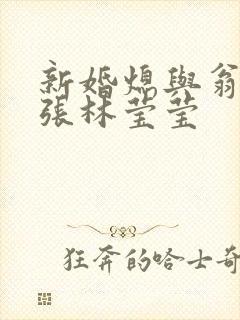 新婚熄與翁
張林莹莹
狂奔的哈士奇